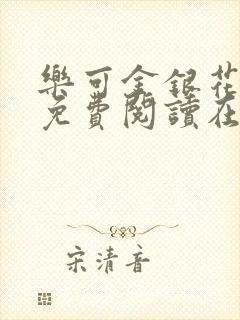 樂可金銀花
免費閱讀在
宋清音